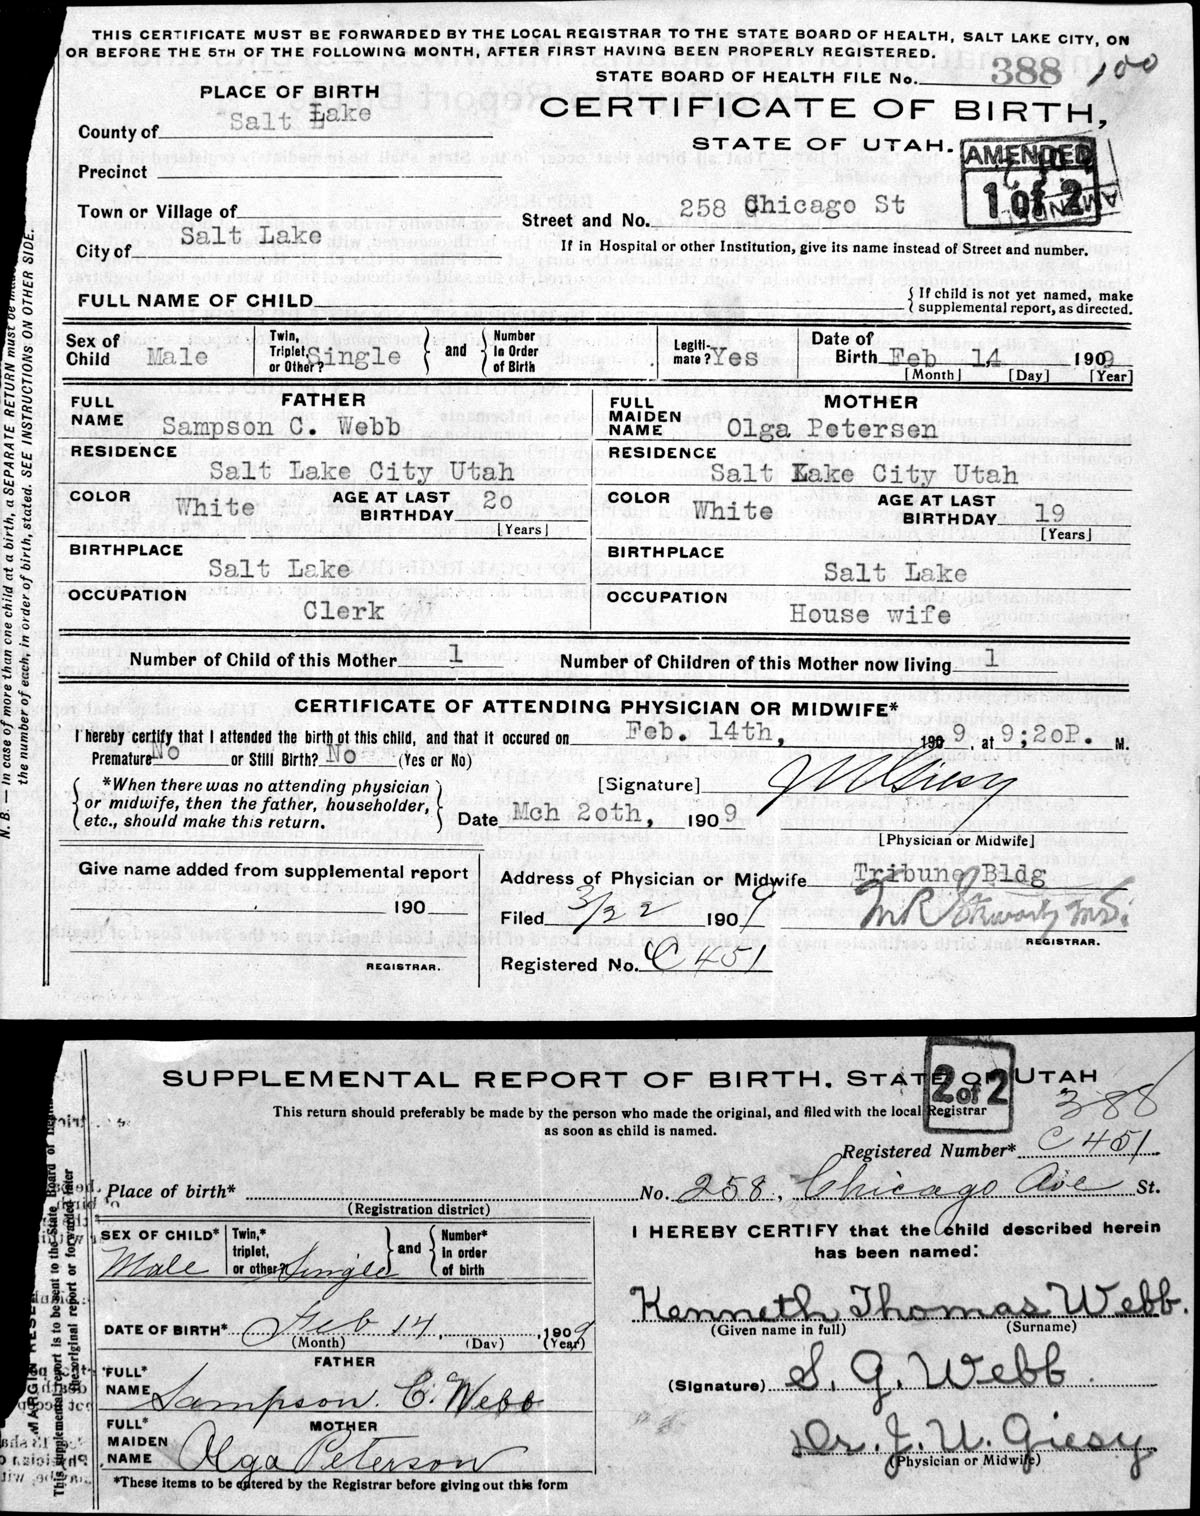 THIS CERTIFICATE MUST BE FORWARDED BY THE LOCAL REGISTRAR TO THE STATE BOARD OF HEALTH, SALT LAKE CITY, ON
OR BEFORE THE 5TH OF THE FOLLOWING MONTH, AFTER FIRST HAVING BEEN PROPERLY REGISTERED.
STATE BOARD OF HEALTH FILE No. 388 100
PLACE OF BIRTH
CERTIFICATE OF BIRTH,
County of Salt Lake
STATE OF UTAH.
AMENDED
1 of 2
Precinct
Town or Village of
Street and No. 258 Chicago St
City of Salt Lake
If in Hospital or other Institution, give its name instead of Street and number.
FULL NAME OF CHILD
{ If child is not yet named, make
supplemental report, as directed.
Sex of Child Male
Twin, Triplet, or Other? Single
and
Number in Order of Birth
Legiti-mate? Yes
Date of Birth Feb 14 1909
[Month] [Day] [Year]
FATHER
MOTHER
FULL NAME Sampson C. Webb
FULL MAIDEN NAME Olga Petersen
RESIDENCE
RESIDENCE
Salt Lake City Utah
Salt Lake City Utah
COLOR White AGE AT LAST BIRTHDAY 20 [Years]
COLOR White AGE AT LAST BIRTHDAY 19 [Years]
BIRTHPLACE
BIRTHPLACE
Salt Lake
Salt Lake
OCCUPATION
OCCUPATION
Clerk
House wife
Number of Child of this Mother 1
Number of Children of this Mother now living 1
CERTIFICATE OF ATTENDING PHYSICIAN OR MIDWIFE*
I hereby certify that I attended the birth of this child, and that it occured on Feb. 14th, 1909, at 9;20P. M.
Premature No or Still Birth? No (Yes or No)
*When there was no attending physician
or midwife, then the father, householder,
etc., should make this return.
[Signature] J U Giesy
Date Mch 20th, 1909
[Physician or Midwife]
Give name added from supplemental report
190
REGISTRAR.
Address of Physician or Midwife Tribune Bldg
Filed 3/22 1909
REGISTRAR.
Registered No. C 451
N. B. — In case of more than one child at a birth, a SEPARATE RETURN must be made
the number of each, in order of birth, stated. SEE INSTRUCTIONS ON OTHER SIDE.
SUPPLEMENTAL REPORT OF BIRTH. STATE OF UTAH
2 of 2
This return should preferably be made by the person who made the original, and filed with the local Registrar
as soon as child is named.
388
Registered Number* C 451
Place of birth*
(Registration district)
No. 258, Chicago Ave St.
SEX OF CHILD* Male
Twin,* triplet, or other? Single
and
Number* in order of birth
I HEREBY CERTIFY that the child described herein
has been named:
Kenneth Thomas Webb.
(Given name in full) (Surname)
DATE OF BIRTH* Feb 14, 1909
(Month) (Day) (Year)
FATHER
FULL* NAME Sampson. C. Webb
(Signature) S. G. Webb
MOTHER
FULL* MAIDEN NAME Olga Peterson
Dr. J. U. Giesy
(Physician or Midwife)
*These items to be entered by the Registrar before giving out this form
This supplemental report is to be sent to the State Board of
the original report or forwarded later